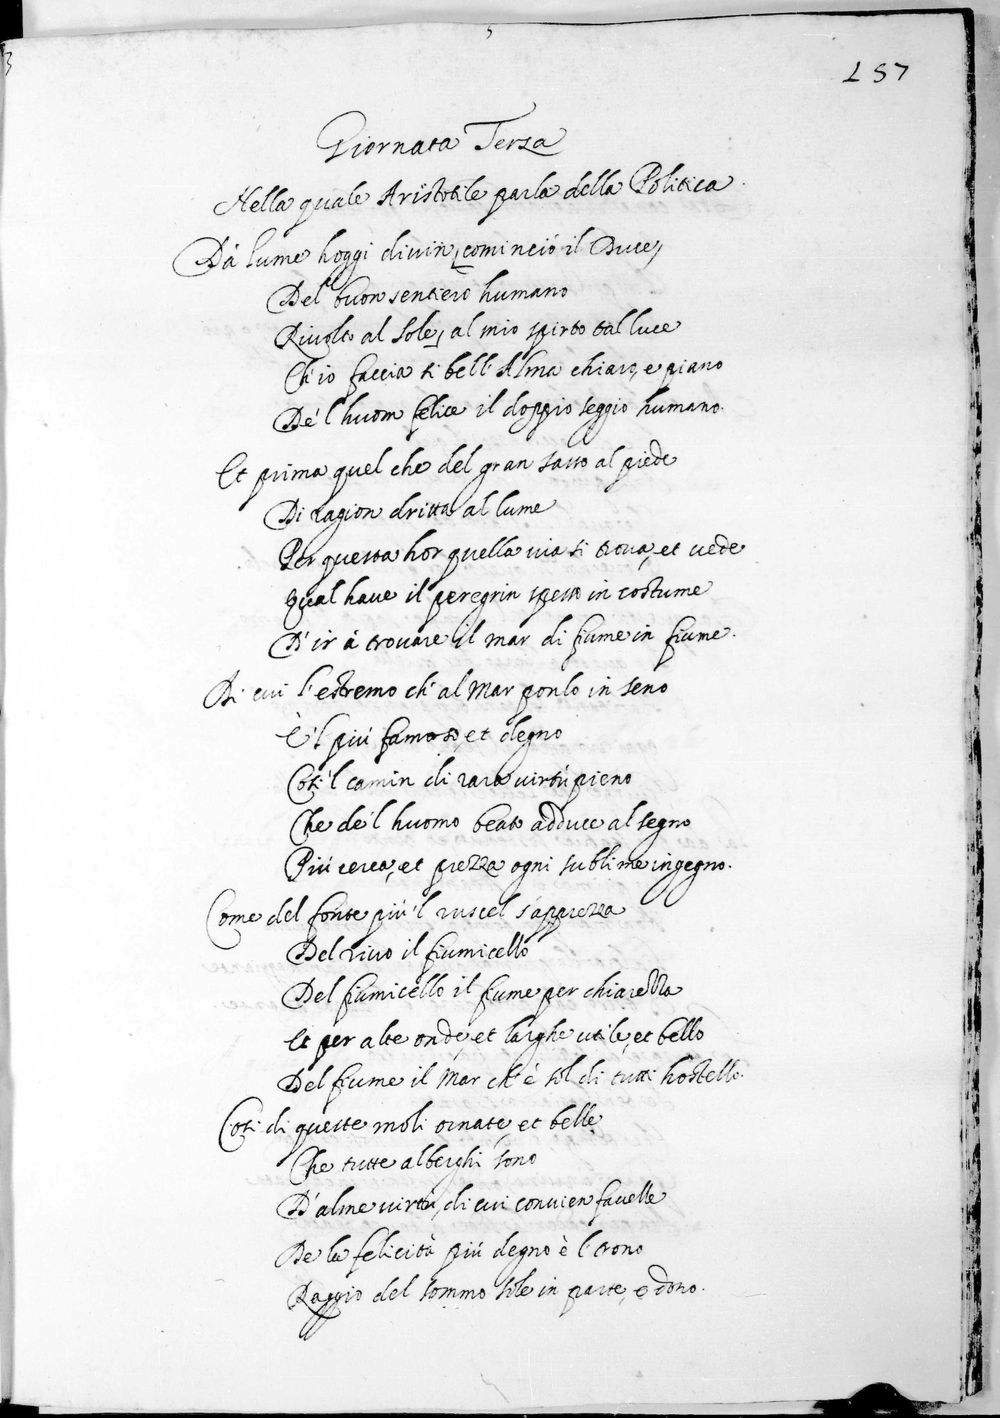 157
Giornata Terza
Nella quale Aristotile parla della Politica.
Dà lume hoggi divin, cominciò il Duce,
Del buon sentiero humano
Rivolto al sole, al mio spirto tal luce
Ch'io faccia sì bell'Alma chiaro, e piano
De'l huom felice il doppio seggio humano.
Et prima quel che del gran sasso al piede
Di ragion dritta al lume
Per questa hor quella via si trova, et vede
Qual have il peregrin spesso in costume
D'ir à trovare il mar di fiume in fiume.
Di cui l'estremo ch'al Mar ponlo in seno
È'l più famoso, et degno
Così'l camin di rara virtù pieno
Che de'l huomo beato adduce al segno
Più cerca, et prezza ogni sublime ingegno.
Come del fonte più'l ruscel s'apprezza
Del rivo il fiumicello
Del fiumicello il fiume per chiarezza
Et per alte onde, et larghe utile, et bello
Del fiume il Mar ch'è sol di tutti hostello.
Così di queste moli ornate, et belle
Che tutte alberghi sono
D'alme virtù, di cui convien favelle
De la felicità più degno è'l trono
Raggio del sommo sole in parte, e dono.